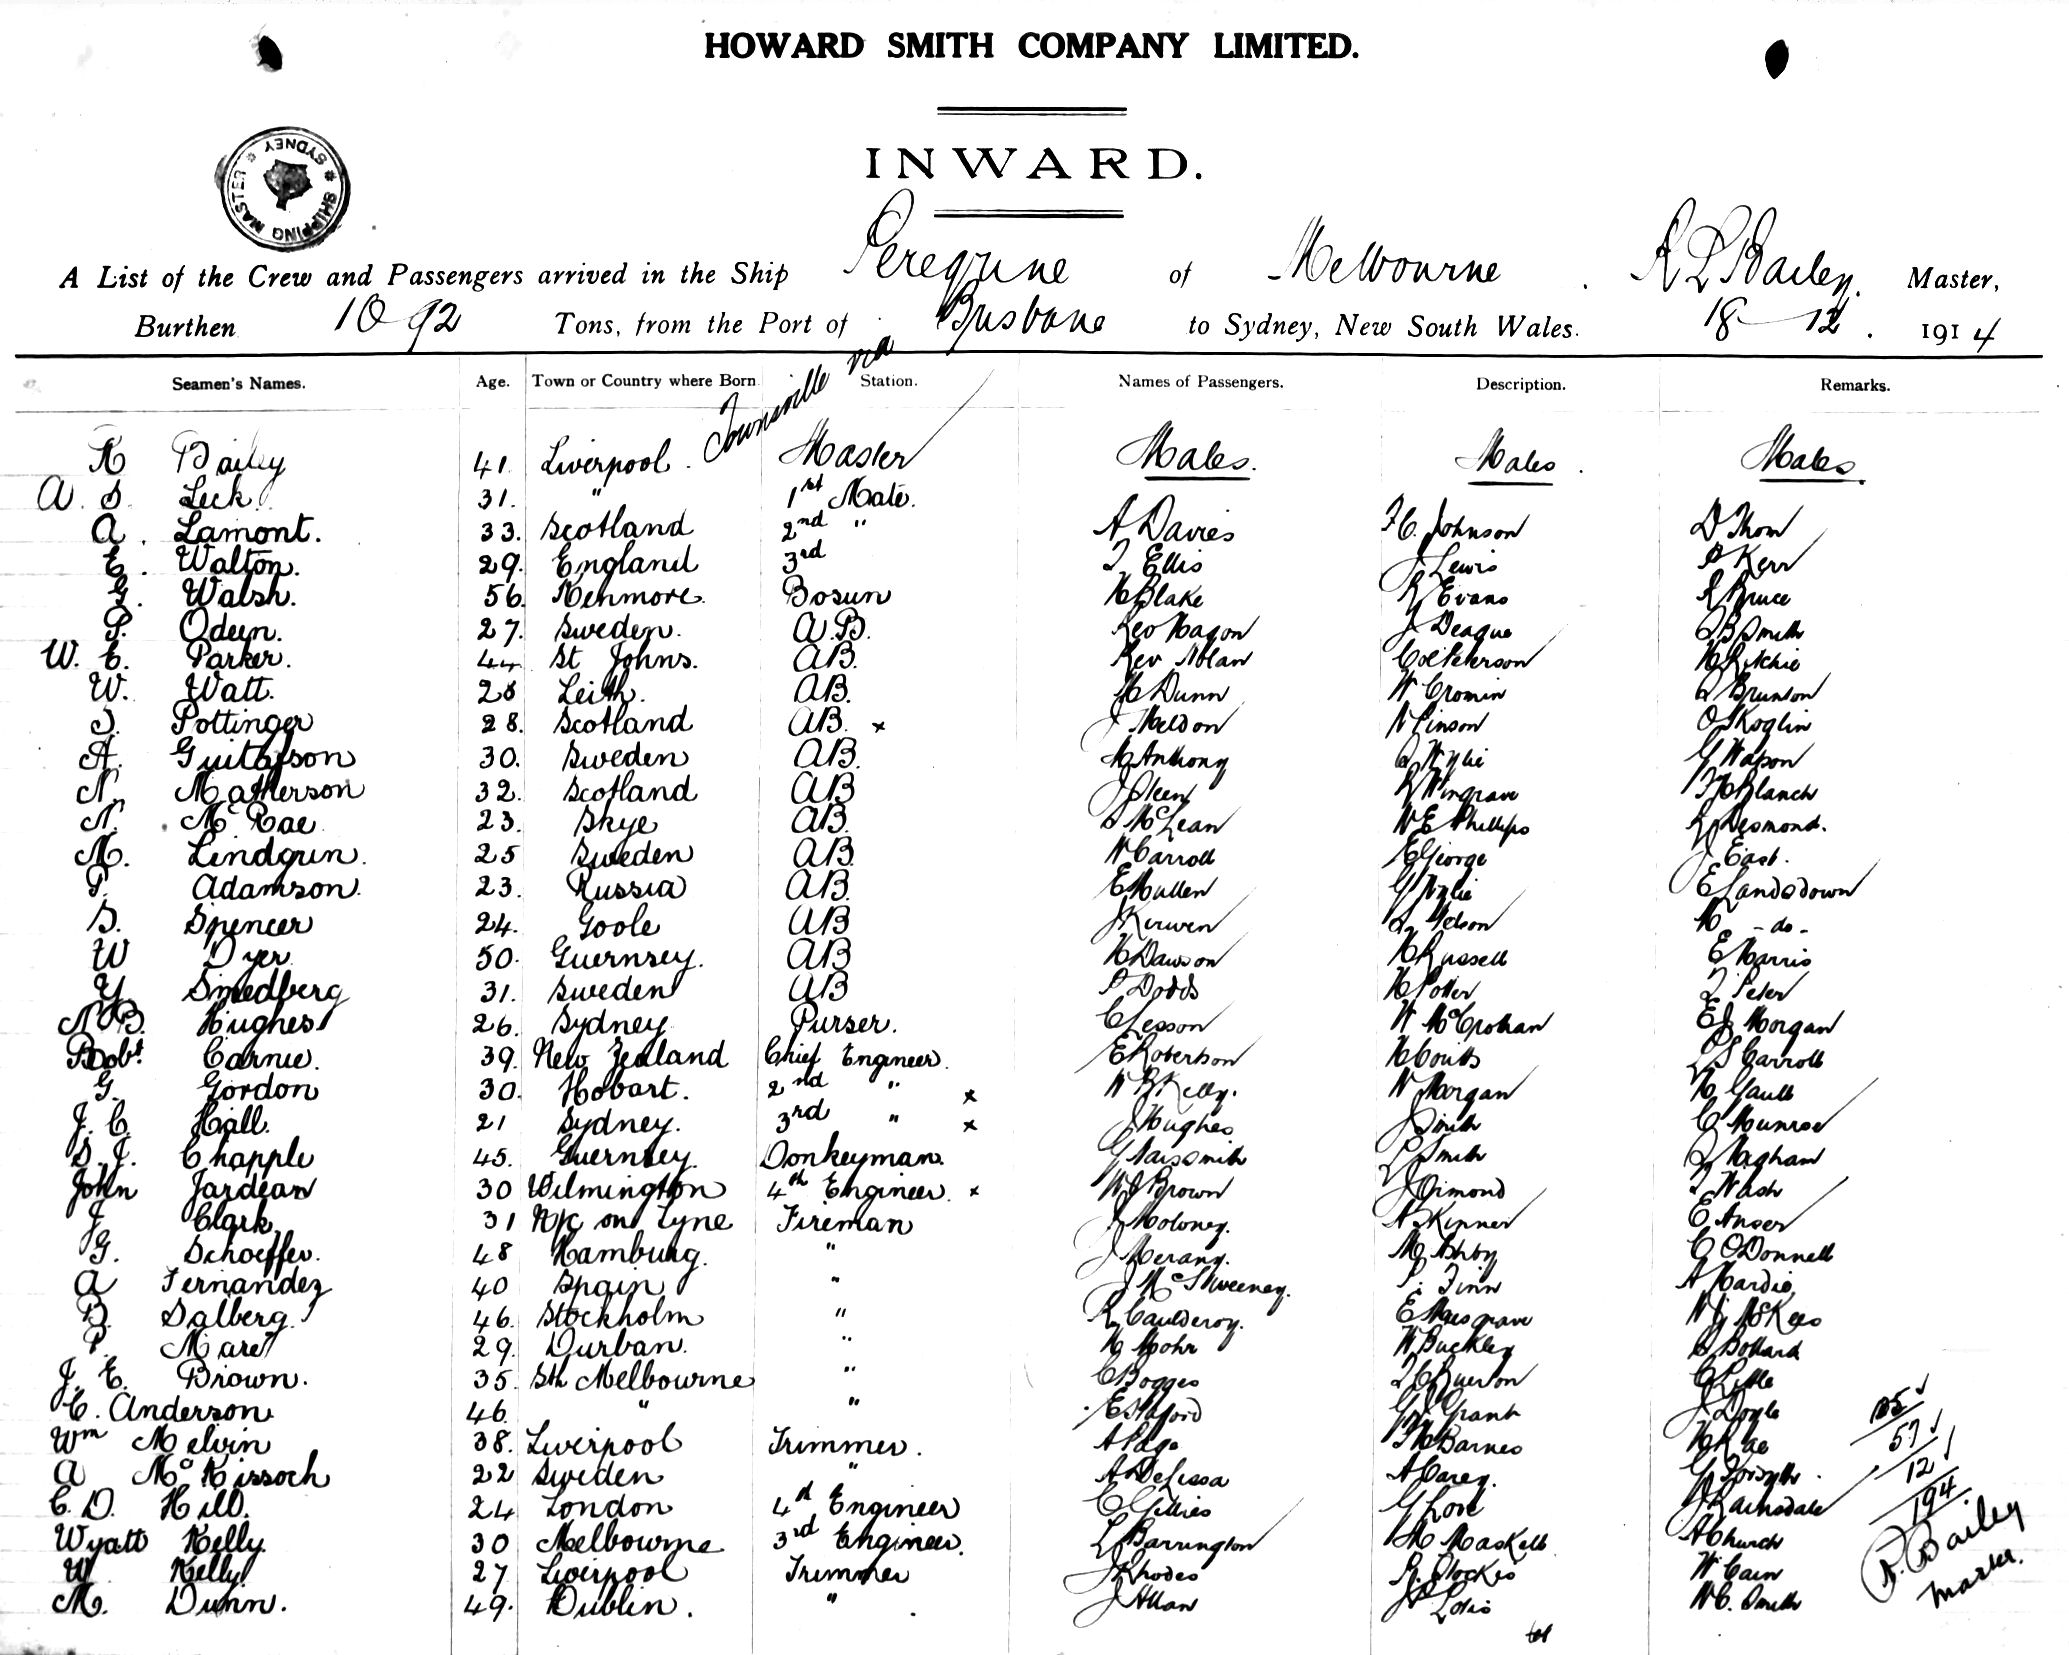 HOWARD SMITH COMPANY LIMITED.
INWARD.
SHIPPING MASTER * SYDNEY *
A List of the Crew and Passengers arrived in the Ship Peregrine of Melbourne R L Bailey. Master,
Burthen 1092 Tons, from the Port of Townsville via Brisbane to Sydney, New South Wales. 18-12. 1914
Seamen's Names. Age. Town or Country where Born Station. Names of Passengers. Description. Remarks.
Bailey 41 Liverpool. Master Males. Males. Males.
A. S. Leck 31. " 1st Mate.
A. Lamont. 33. Scotland 2nd " A Davies Johnson D Thom
E. Walton. 29. England 3rd Ellis J Lewis Kerr
G. Walsh. 56. Kenmore. Bosun H Blake R Evans R Bruce
P. Odeen. 27. Sweden. A.B. J Deague Smith
W. E. Parker. 44 St Johns. AB. Rev Nolan H Ritchie
W. Watt. 28 Leith. AB. Dunn W Cromin Brunton
S. Pottinger 28. Scotland AB. x J Meldon O Skoglin
A. Guitafson 30. Sweden AB. Anthony Wylie G Watson
N. Matherson 32. Scotland AB J Steen R Wingrave Blanch
N. McRae 23. Skye AB. McLean W E Phillips R Desmond.
M. Lindgrin. 25 Sweden AB. W Carroll E George J East.
P. Adamson. 23. Russia AB. E Mullen G Wylie E Landsdown
S. Spencer 24. Goole AB J Kirwen Nelson H - do -
W Dyer 50. Guernsey. AB H Dawson H Russell E Harris
Smedberg 31. Sweden AB Dodds H Potter Peter
N. B. Hughes 26. Sydney Purser. C Lesson E J Morgan
Robt. Carnie. 39. New Zealand Chief Engineer. E Robertson H Coutts Carroll
G. Gordon 30. Hobart. 2nd " x W R Kelly. W Morgan H Gault
J. C. Hall. 21 Sydney. 3rd " x J Hughes J Smith C Munroe
S. J. Chapple 45. Guernsey. Donkeyman. G Naissmith Smith
John Jardean 30 Wilmington 4th Engineer. x W J Brown J Dimond Nash
J. Clark 31 N/c on Tyne Fireman J Moloney. A Skinner E Anser
G. Schoeffer. 48 Hamburg. " J Merany. M Ashby C O'Donnell
A Fernandez 40 Spain " J McSweeney. Finn A Hardie
B. Salberg. 46. Stockholm " R Caulderoy. E Musgrave W J McKees
P. Mare 29. Durban. " H Mohr W Buckley Bollard
J. E. Brown. 35. Sth Melbourne " C Bogges C Little
C. Anderson 46. " " E Stafford Grant J Doyle 125
Wm Melvin 38. Liverpool Trimmer. A Page Barnes H Rae 57
A McKissoch 22 Sweden " A DeLissa A Carey. G Forsyth. 12
C. D. Hill. 24 London 4d Engineer C Gillies G Love J Rainsdale 194.
Wyatt Kelly. 30 Melbourne 3rd Engineer. L Barrington Maskell A Church R. Bailey
W Kelly 27 Liverpool Trimmer J Rhodes Stockes W Cain Master.
M. Dunn. 49. Dublin. " J Allan W C. Smith